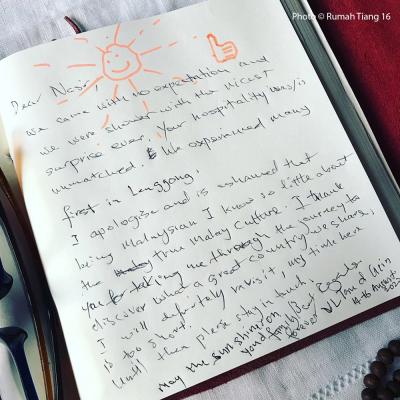 Photo © Rumah Tiang 16
Dear Nasir,
We came with no expectation and
we were shower with the nicest
surprise ever. Your hospitality was/is
unmatched. We experienced many
first in Lenggong.
I apologise and is ashamed that
being Malaysian I know so little about
the true Malay Culture. I thank
you for taking me through the journey to
discover what a great country we share,
I will definitely revisit, my time here
is too short.
Until then please stay in touch.
May the sun shine on
you & family
forever
14-16 August